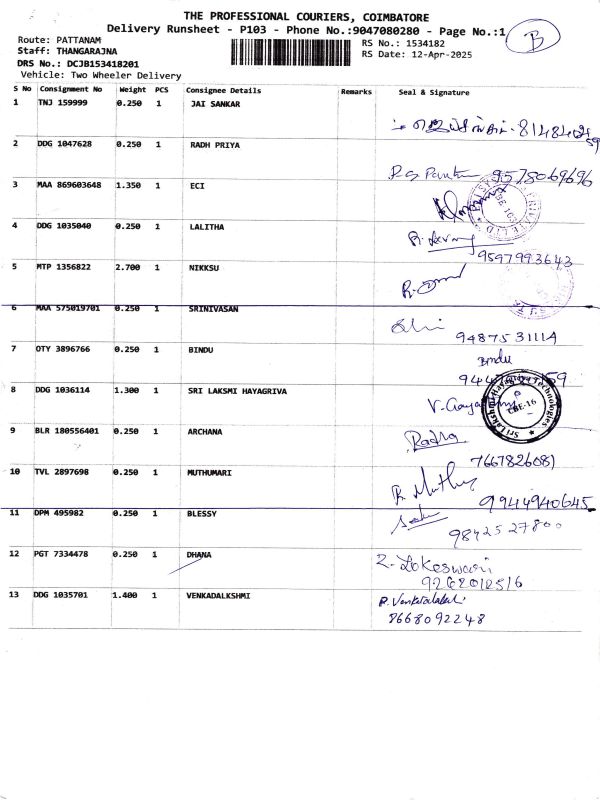 THE PROFESSIONAL COURIERS, COIMBATORE
Delivery Runsheet - P103 - Phone No.:9047080280 - Page No.:1
B
Route: PATTANAM
RS No.: 1534182
Staff: THANGARAJNA
RS Date: 12-Apr-2025
DRS No.: DCJB153418201
Vehicle: Two Wheeler Delivery
S No Consignment No Weight PCS Consignee Details Remarks Seal & Signature
1 TNJ 159999 0.250 1 JAI SANKAR
2 DDG 1047628 0.250 1 RADH PRIYA
9575069696
3 MAA 869603648 1.350 1 ECI
4 DDG 1035040 0.250 1 LALITHA
9597993643
5 MTP 1356822 2.700 1 NIKKSU
6 MAA 575019701 0.250 1 SRINIVASAN
9487531114
7 OTY 3896766 0.250 1 BINDU
Bindu
8 DDG 1036114 1.300 1 SRI LAKSMI HAYAGRIVA
Sri Lakshmi Hayagriva Technologies
CBE-16
9 BLR 180556401 0.250 1 ARCHANA
7667826081
10 TVL 2897698 0.250 1 MUTHUMARI
9944940645
11 DPM 495982 0.250 1 BLESSY
9842527800
12 PGT 7334478 0.250 1 DHANA
Z. Lokeswari
13 DDG 1035701 1.400 1 VENKADALKSHMI
8668092248